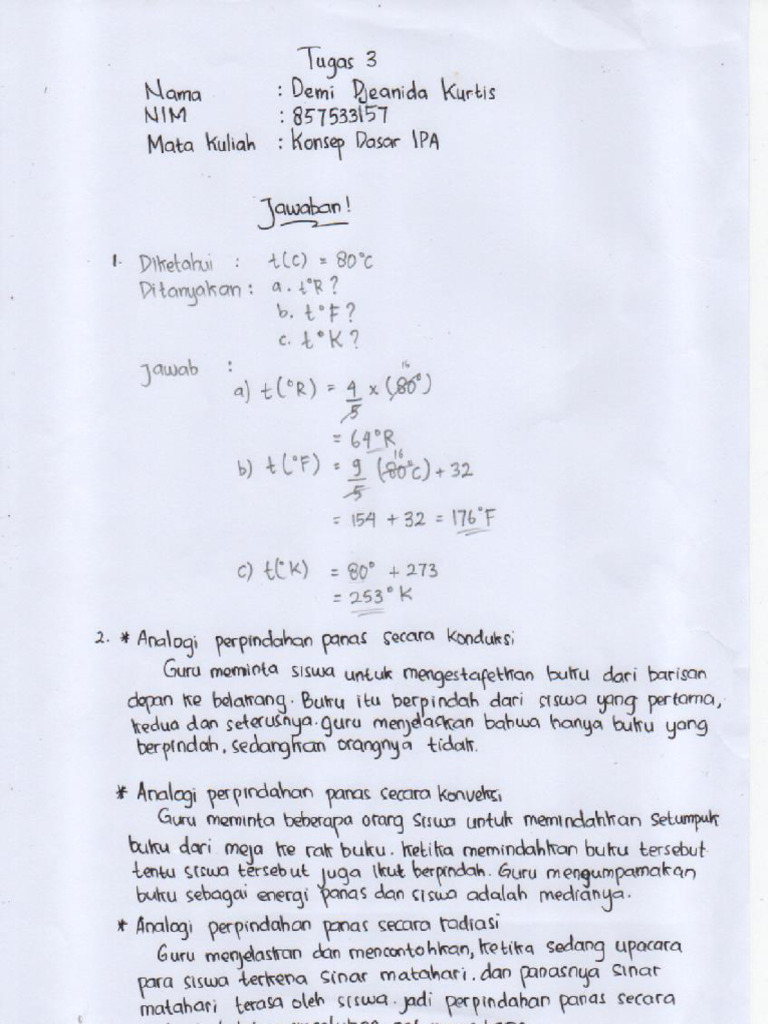 Tugas 3
Nama : Demi Djeanida Kurtis
NIM : 857533157
Mata Kuliah : Konsep Dasar IPA
Jawaban!
1. Diketahui : t(c) = 80°C
Ditanyakan : a. t°R?
b. t°F?
c. t°K?
Jawab :
a) t(°R) = 4/5 x (80°) 16
= 64°R
b) t(°F) = 9/5 (80°C) 16 + 32
= 154 + 32 = 176°F
c) t(°K) = 80° + 273
= 253°K
2. * Analogi perpindahan panas secara konduksi
Guru meminta siswa untuk mengestafetkan buku dari barisan
depan ke belakang. Buku itu berpindah dari siswa yang pertama,
kedua dan seterusnya. guru menjelaskan bahwa hanya buku yang
berpindah, sedangkan orangnya tidak.
* Analogi perpindahan panas secara konveksi
Guru meminta beberapa orang siswa untuk memindahkan setumpuk
buku dari meja ke rak buku. ketika memindahkan buku tersebut
tentu siswa tersebut juga ikut berpindah. Guru mengumpamakan
buku sebagai energi panas dan siswa adalah medianya.
* Analogi perpindahan panas secara radiasi
Guru menjelaskan dan mencontohkan, ketika sedang upacara
para siswa terkena sinar matahari. dan panasnya sinar
matahari terasa oleh siswa. jadi perpindahan panas secara